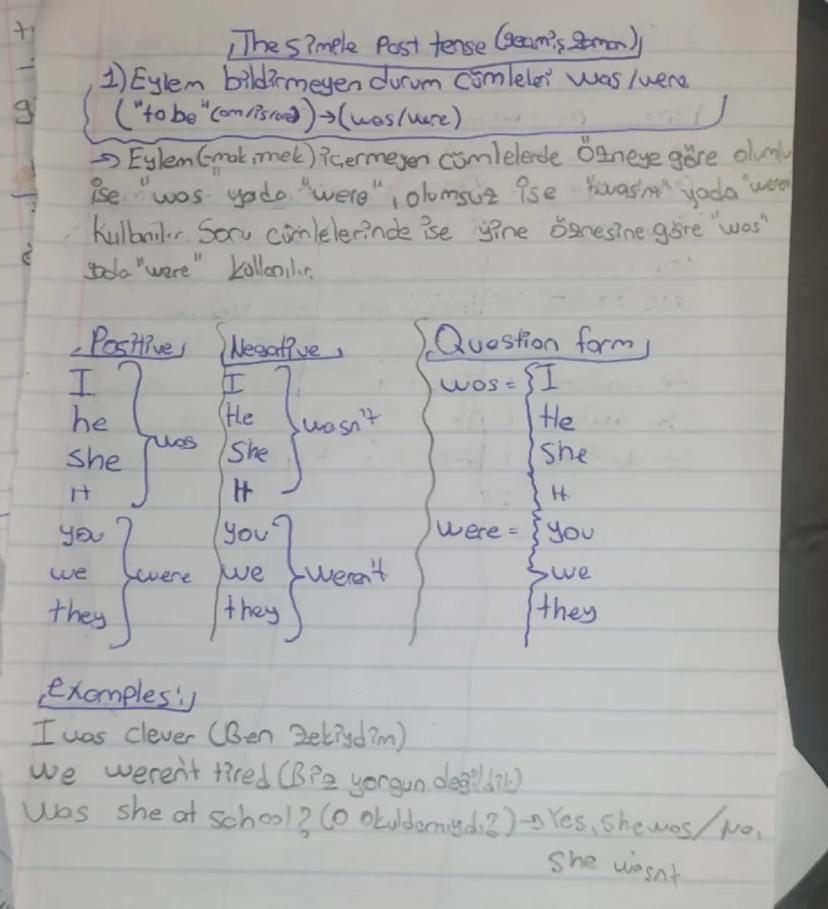 The simple Past tense (Geçmiş zaman)
1) Eylem bildirmeyen durum cümleleri was/were
("to be" (am/is/are) → (was/were)
→ Eylem (-mak, mek) içermeyen cümlelerde Özneye göre olumlu
ise "was" yada "were", olumsuz ise "wasn't" yada "were
kullanılır. Soru cümlelerinde ise yine öznesine göre "was"
yada "were" kullanılır.
Positive Negative Question form
I I was = I
he He He
she was She wasn't She
It It It
you you were = you
we were we weren't we
they they they
Examples:
I was clever (Ben zekiydim)
We weren't tired (Biz yorgun değildik)
Was she at school? (O okuldamıydı?) → Yes, she was / No,
she wasnt